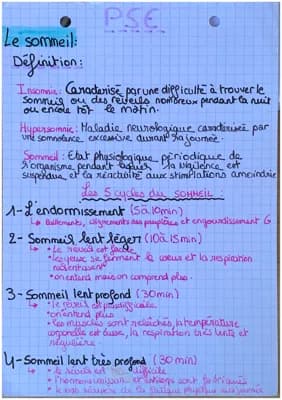 PSE
Le sommeil:
Définition:
Insomnie: Caractérisé par une difficulté à trouver le
sommeil ou des réveils nombreux pendant la nuit
ou encore tôt le matin.
Hypersomnie: Maladie neurologique caractérisée par
une somnolence excessive durant la journée.
Sommeil: État physiologique périodique de
l'organisme pendant lequel la vigilance est
suspendue et la réactivité aux stimulations amoindrie
Les 5 cycles du SOMMEIL:
1-L'endormissement (5 à 10min)
↳ Bâillements, clignements des paupières et engourdissement
2- Sommeil lent léger (10 à 15min)
↳ • le réveil est facile
• les yeux se ferment le cœur et la respiration
ralentissent
• on entend mais on comprend plus.
3- Sommeil lent profond (30min)
↳ • le réveil est difficile
• on entend plus
• les muscles sont relâchés, la température
corporelle est basse, la respiration très lente et
régulière.
4-Sommeil lent très profond (30min)
↳ • le réveil est difficile
• l'hormone croissance sont fabriqués
• récupérer de la fatigue physique